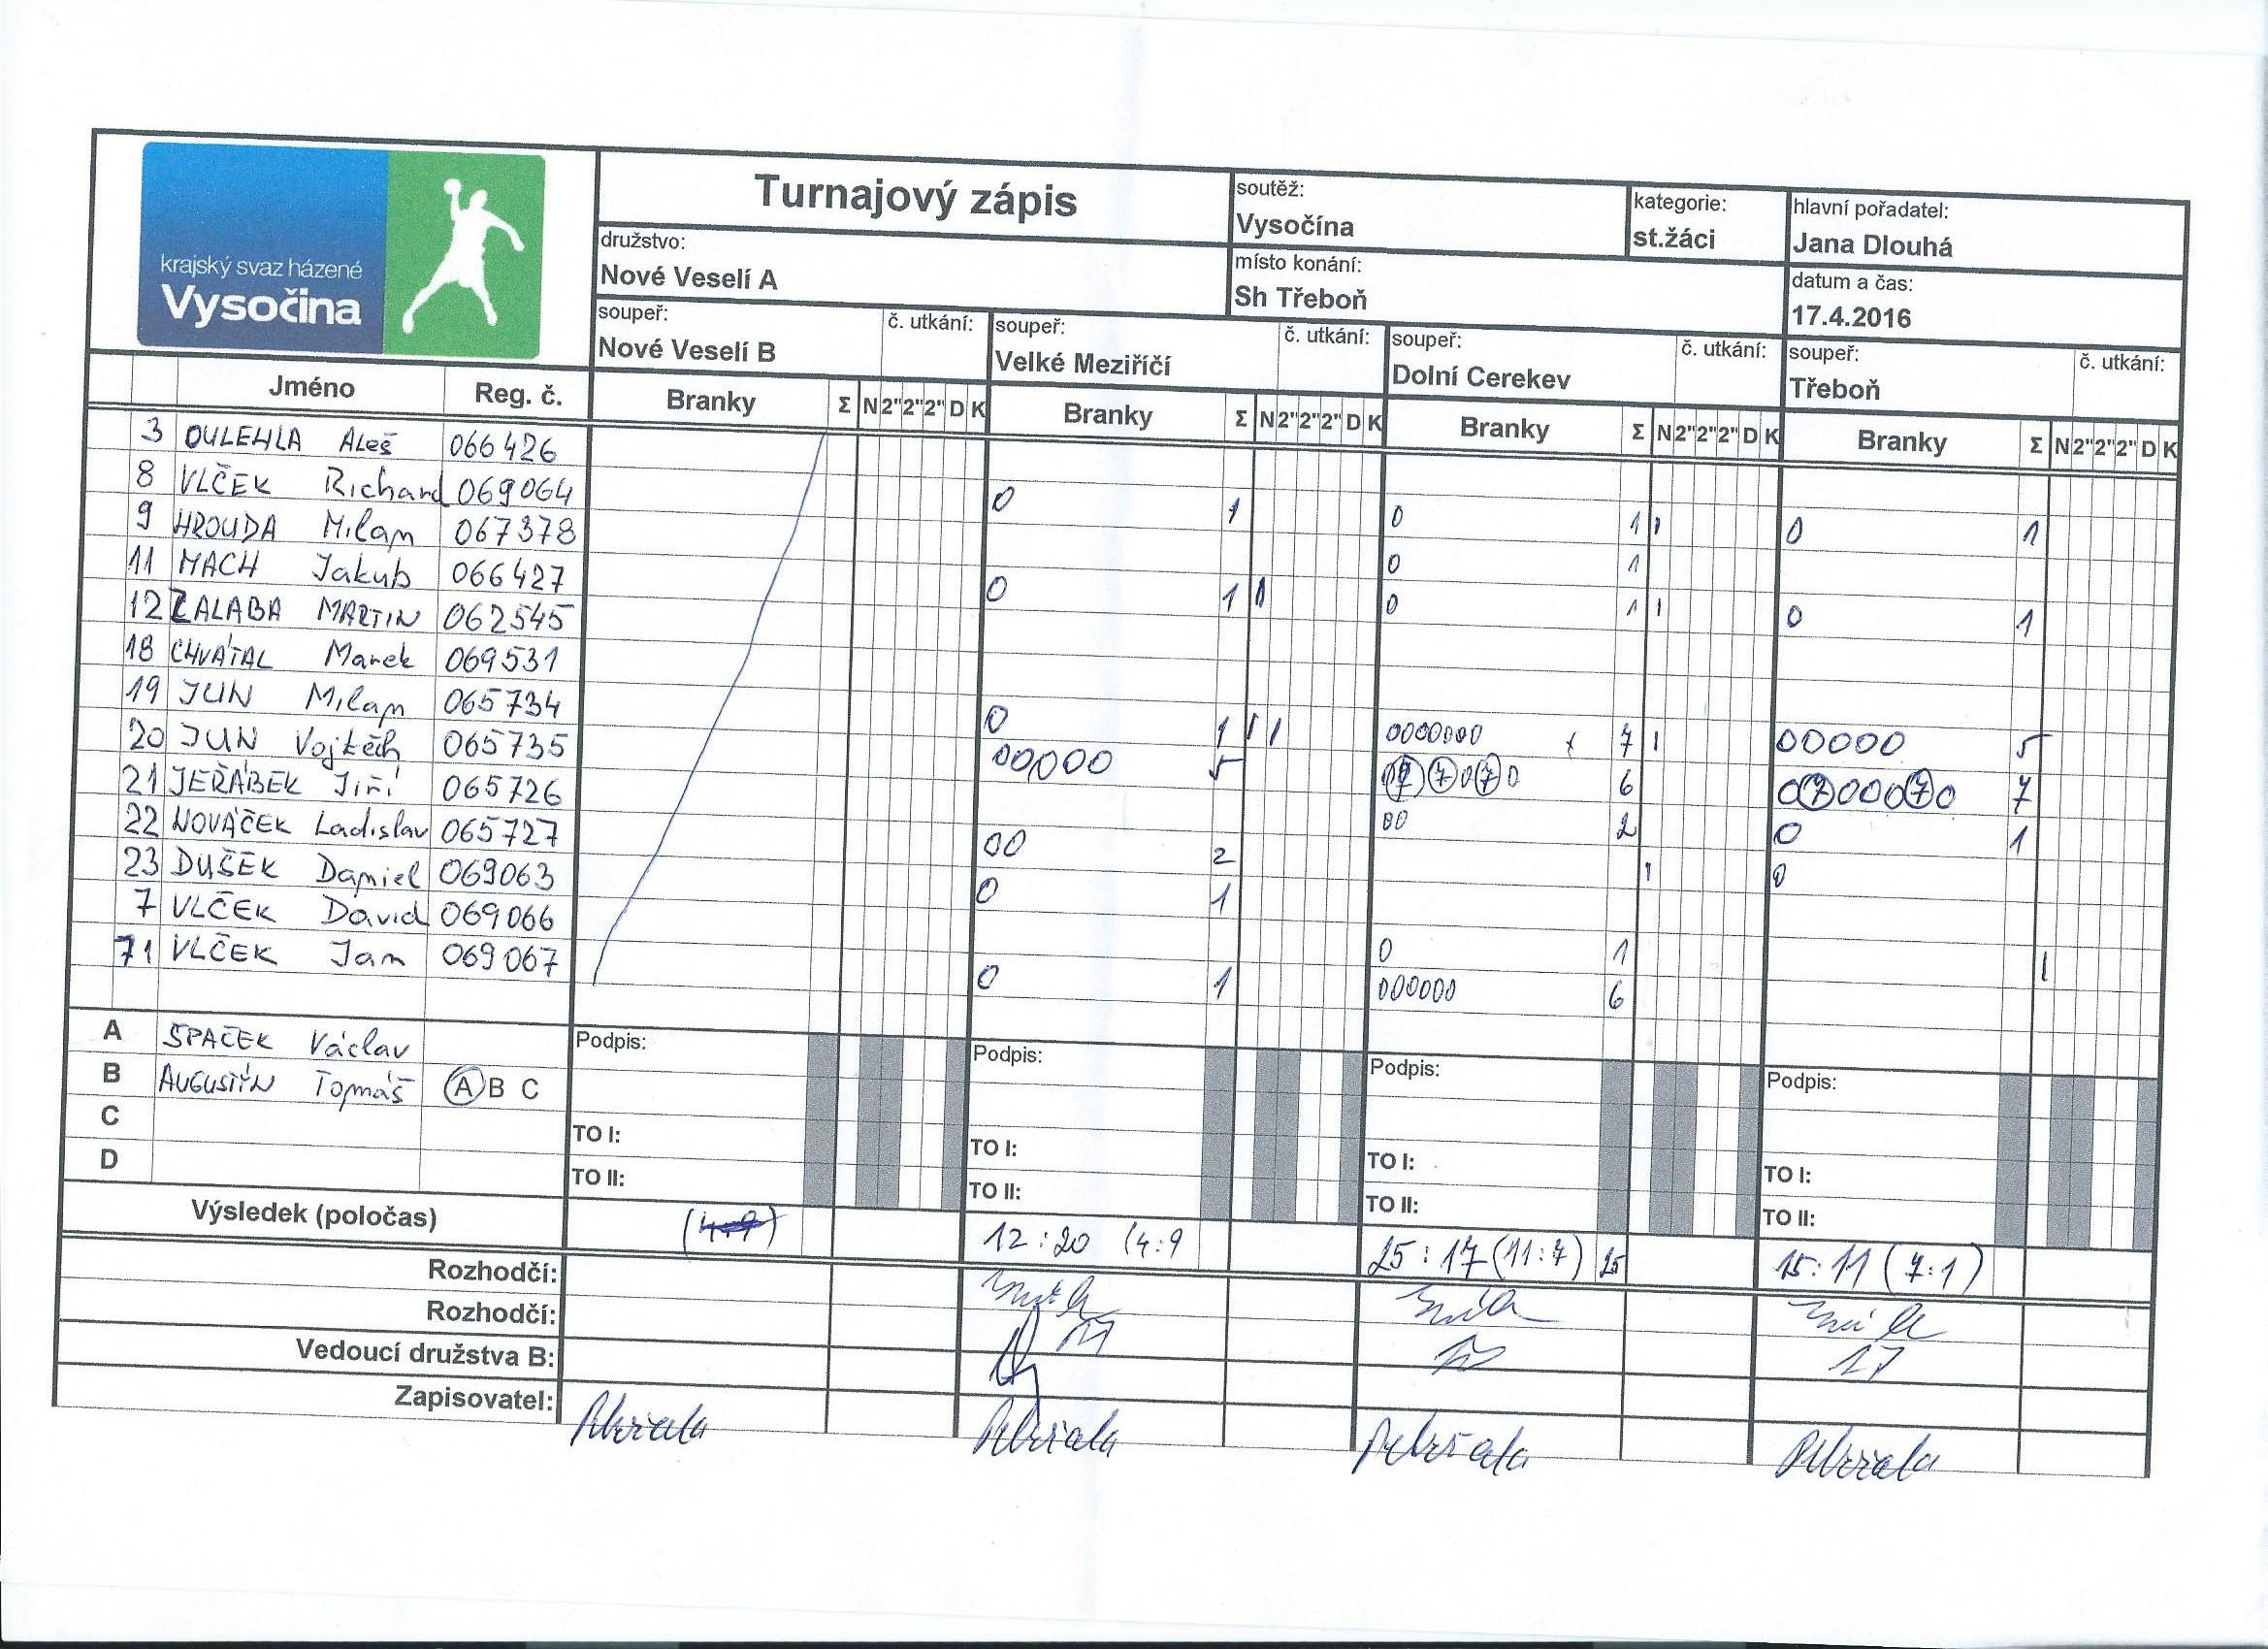 krajský svaz házené
Vysočina
Turnajový zápis
soutěž:
Vysočína
kategorie:
st.žáci
hlavní pořadatel:
Jana Dlouhá
družstvo:
Nové Veselí A
místo konání:
Sh Třeboň
datum a čas:
17.4.2016
soupeř: č. utkání: soupeř: č. utkání: soupeř: č. utkání: soupeř: č. utkání:
Nové Veselí B Velké Meziříčí Dolní Cerekev Třeboň
Jméno Reg. č. Branky Σ N 2" 2" 2" D K Branky Σ N 2" 2" 2" D K Branky Σ N 2" 2" 2" D K Branky Σ N 2" 2" 2" D K
3 OULEHLA Aleš 066426
8 VLČEK Richard 069064 0 1 0 1 1 0 1
9 HROUDA Milan 067378 0 1
11 MACH Jakub 066427 0 1 1 0 1 1 0 1
12 ZALABA MARTIN 062545
18 CHVÁTAL Marek 069531
19 JUN Milan 065734 0 1 1 1 0000000 7 1 00000 5
20 JUN Vojtěch 065735 00000 5 6 0700070 7
21 JEŘÁBEK Jiří 065726 00 2 0 1
22 NOVÁČEK Ladislav 065727 00 2 1 0
23 DUŠEK Daniel 069063 0 1
7 VLČEK David 069066 0 1 1
71 VLČEK Jan 069067 0 1 000000 6
A ŠPAČEK Václav Podpis: Podpis: Podpis: Podpis:
B AUGUSTÝN Tomáš A B C
C TO I: TO I: TO I: TO I:
D TO II: TO II: TO II: TO II:
Výsledek (poločas) (4:9) 12:20 (4:9 25:17 (11:7) 25 15:11 (7:1)
Rozhodčí:
Rozhodčí:
Vedoucí družstva B:
Zapisovatel: